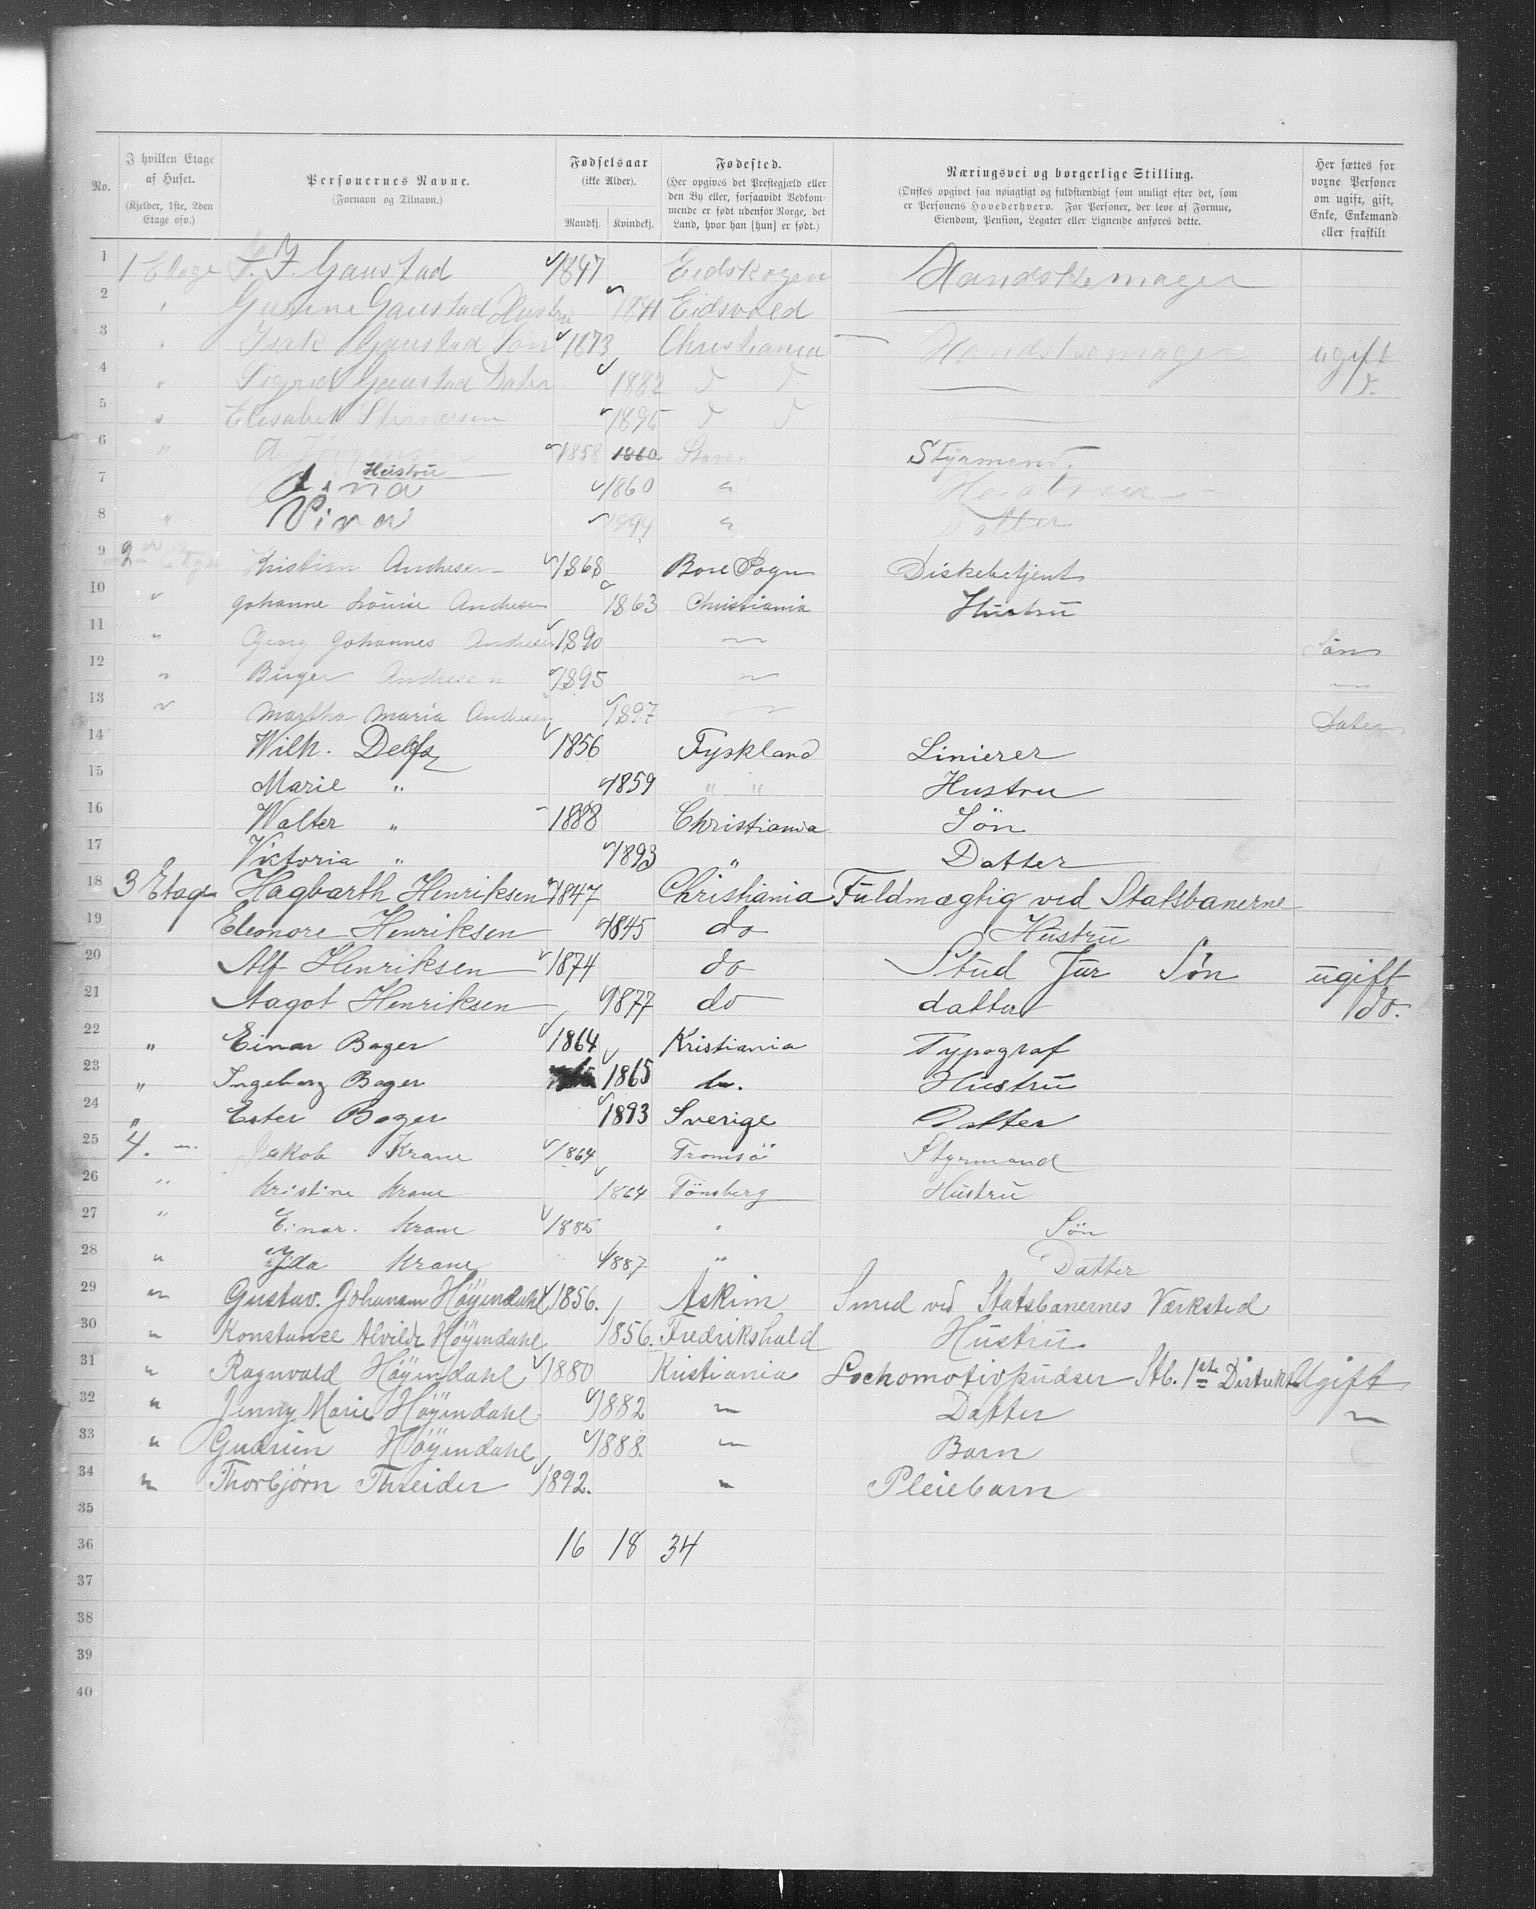 No.
I hvilken Etage af Huset.
(Kjelder, 1ste, 2den Etage osv.)
Personernes Navne.
(Fornavn og Tilnavn.)
Fødselsaar
(ikke Alder).
Mandkj. Kvindekj.
Fødested.
(Her opgives det Prestegjæld eller den By eller, forsaavidt Vedkommende er født udenfor Norge, det Land, hvor han [hun] er født.)
Næringsvei og borgerlige Stilling.
(Ønskes opgivet saa nøiagtigt og fuldstændigt som muligt efter det, som er Personens Hovederhverv. For Personer, der leve af Formue, Eiendom, Pension, Legater eller Lignende anføres dette.
Her sættes for voxne Personer om ugift, gift, Enke, Enkemand eller fraskilt
1 1 Etage Gaustad 1847 Eidskogen Handskemager
2 Gaustad Hustru Eidsvold
3 Isak Gaustad Søn 1873 Christiania — Handskemager ugift
4 " Sigrid Gaustad Dater 1882
5 " Elisabet 1895
6 " 1858 1860 Styrmand.
7 Hustru 1860 "
8 " "
9 Kristian Andresen 1868 Bore Sogn Diskebetjent
10 " Johanne Louise Andresen 1863 Christiania Hustru
11 " Georg Johannes Andresen 1890 — Søn
12 " Birger Andresen 1895 — —
13 " Martha Maria Andresen 1897 — Dater
14 Wilh. Delfs 1856 Tyskland Linierer
15 Marie " 1859 " " Hustru
16 Walter " 1888 Christiania Søn
17 Victoria " 1893 " Datter
18 3 Etage Hagbarth Henriksen 1847 Christiania Fuldmægtig ved Statsbanerne
19 Eleonore Henriksen 1845 do Hustru
20 Alf Henriksen 1874 do Stud Jur Søn ugift
21 Aagot Henriksen 1877 do datter do.
22 " Einar Bager 1864 Kristiania Typograf
23 " Ingeborg Bager 1865 Hustru
24 " Ester Bager 1893 Sverige Datter
25 4. — Jakob Krane 1864 Tromsö Styrmand
26 " Kristine Krane 1864 Tönsberg Hustru
27 " Einar Krane 1885 " Søn
28 " Ida Krane 1887 " Datter
29 " Gustav. Johansen Höyendahl 1856. Askim Smed ved Statsbanernes Værksted
30 " Konstance Alvilde Höyendahl 1856. Fredrikshald Hustru
31 " Ragnvald Höyendahl 1880 Kristiania Lochomotivpudser Stb. 1ste Distrikt Ugift
32 " Jenny Marie Höyendahl 1882 " Datter "
33 " Gudrun Höyendahl 1888. " Barn
34 " Thorbjørn 1892. " Pleiebarn
35
36 16 18 34
37
38
39
40